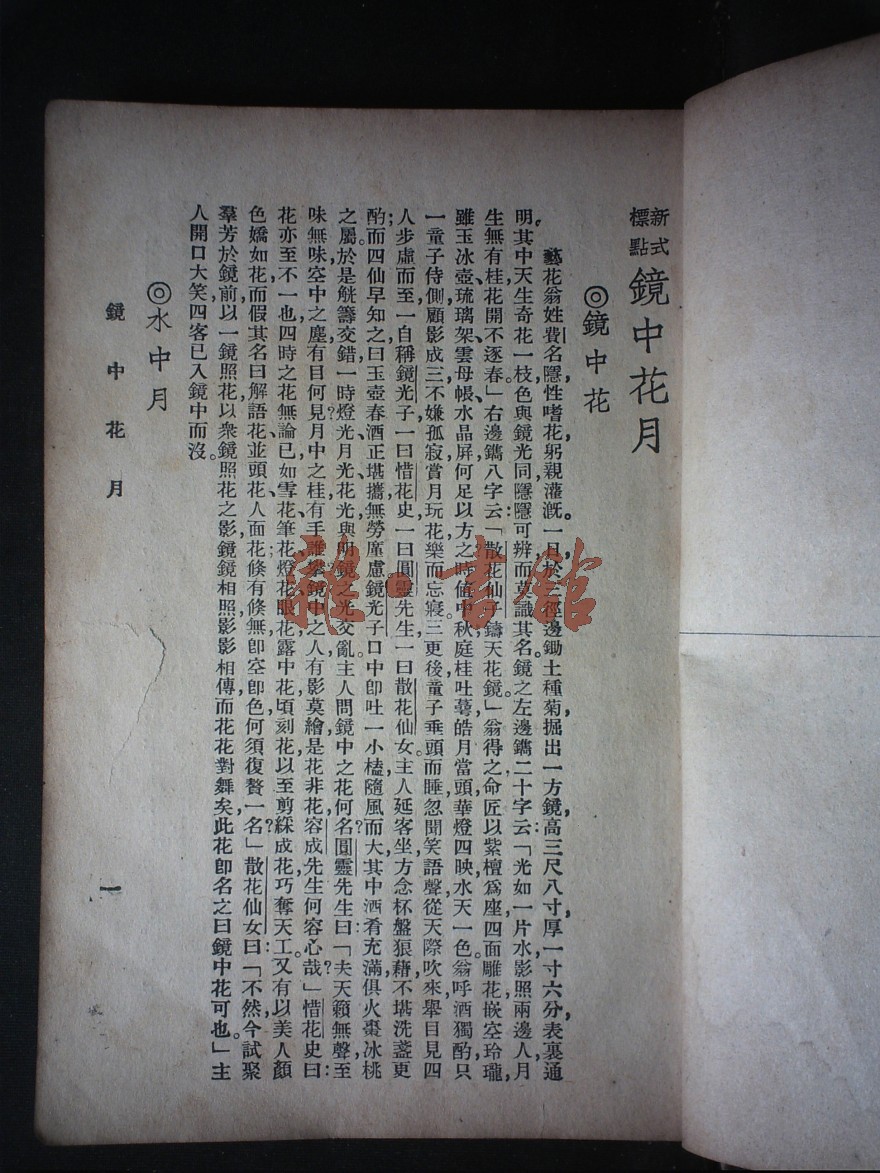 新式標點 鏡中花月
◎鏡中花
藝花翁姓費名隱性嗜花躬親灌漑一旦於徑邊鋤土種菊掘出一方鏡高三尺八寸厚一寸六分表裏通
明其中天生奇花一枝色與鏡光同隱隱可辨而莫識其名鏡之左邊鐫二十字云「光如一片水影照兩邊人月
生無有桂花開不逐春」右邊鐫八字云「散花仙子鑄天花鏡」翁得之命匠以紫檀爲座四面雕花嵌空玲瓏
雖玉冰壺琉璃架雲母帳水晶屏何足以方之時値中秋庭桂吐蕚皓月當頭華燈四映水天一色翁呼酒獨酌只
一童子侍側顧影成三不嫌孤寂賞月玩花樂而忘寢三更後童子垂頭而睡忽聞笑語聲從天際吹來舉目見四
人步虛而至一自稱鏡光子一曰惜花史一曰圓靈先生一曰散花仙女主人延客坐方念杯盤狼藉不堪洗盞更
酌而四仙早知之曰玉壺春酒正堪攜無勞塵慮鏡光子口中卽吐一小榼隨風而大其中酒肴充滿俱火棗冰桃
之屬於是觥籌交錯一時燈光月光花光與明鏡之光交亂主人問鏡中之花何名圓靈先生曰「夫天籟無聲至
味無味空中之塵有目何見月中之桂有手誰攀鏡中之人有影莫繪是花非花容成先生何容心哉」惜花史曰
花亦至不一也四時之花無論已如雪花筆花燈花眼花露中花頃刻花以至剪綵成花巧奪天工又有以美人顏
色嬌如花而假其名曰解語花並頭花人面花倏有倏無卽空卽色何須復贅一名」散花仙女曰「不然今試聚
羣芳於鏡前以一鏡照花以衆鏡照花之影鏡鏡相照影影相傳而花花對舞矣此花卽名之曰鏡中花可也」主
人開口大笑四客已入鏡中而沒。
◎水中月
鏡中花月
一
雜·書館